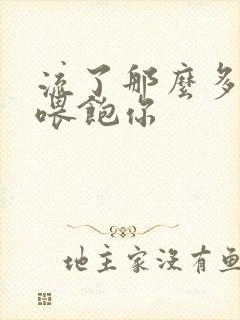 流了那麼多
喂飽你
地主家沒有鱼